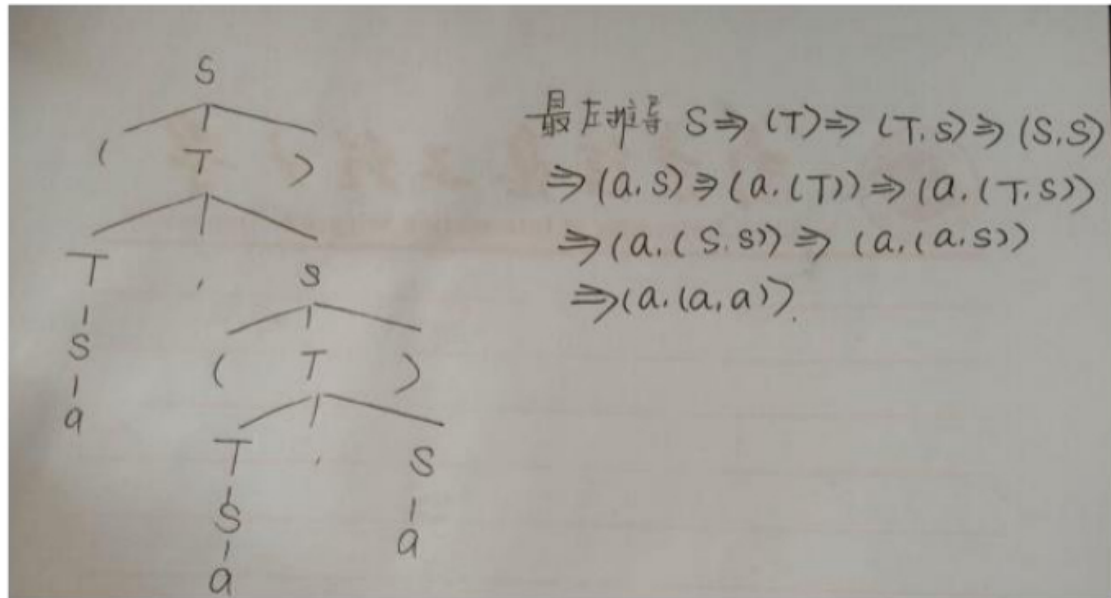 S
( T )
T , S
S ( T )
a T , S
S a
a
最左推导 S⇒(T)⇒(T,S)⇒(S,S)
⇒(a,S)⇒(a,(T))⇒(a,(T,S))
⇒(a,(S,S))⇒(a,(a,S))
⇒(a,(a,a)).